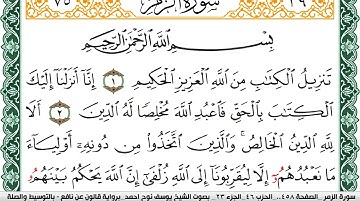 ٧٥ سورة الزمر ٣٩
بِسْمِ اللَّهِ الرَّحْمَٰنِ الرَّحِيمِ
تَنزِيلُ الْكِتَابِ مِنَ اللَّهِ الْعَزِيزِ الْحَكِيمِ ١ إِنَّا أَنزَلْنَا إِلَيْكَ
الْكِتَابَ بِالْحَقِّ فَاعْبُدِ اللَّهَ مُخْلِصًا لَهُ الدِّينَ ٢ أَلَا
لِلَّهِ الدِّينُ الْخَالِصُ وَالَّذِينَ اتَّخَذُوا مِن دُونِهِ أَوْلِيَاءَ
مَا نَعْبُدُهُمُ إِلَّا لِيُقَرِّبُونَا إِلَى اللَّهِ زُلْفَىٰ إِنَّ اللَّهَ يَحْكُمُ بَيْنَهُمُ
سورة الزمر - الصفحة ٤٥٨ - الحزب ٤٦ الجزء ٢٣ بصوت الشيخ يوسف نوح احمد برواية قالون عن نافع - بالتوسيط والصلة